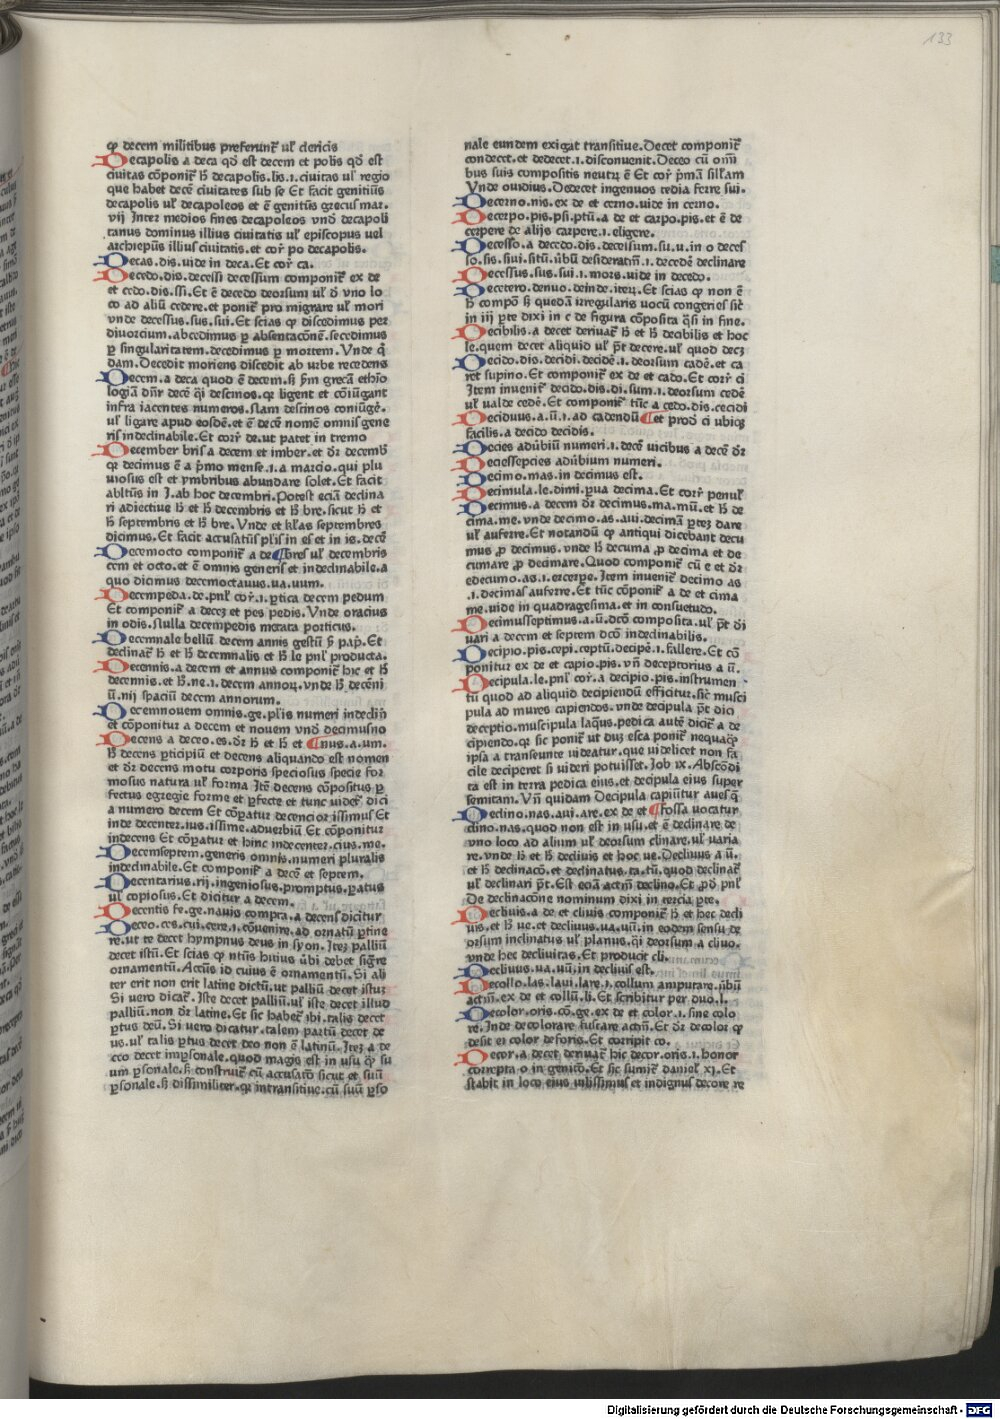 133
ꝙ decem militibus preferunt᷑ ul᷑ clericis
Decapolis a deca qd̄ est decem et polis qd̄ est
ciuitas cōponit᷑ h̄ decapolis.lis.i.ciuitas ul᷑ regio
que habet decē ciuitates sub se Et facit genitiūs
decapolis ul᷑ decapoleos et ē genitūs grecus mar.
vij Inter medios fines decapoleos vnd̄ decapoli
tanus dominus illius ciuitatis ul᷑ episcopus uel
archiepūs illius ciuitatis.et cor᷑ po decapolis.
Decas.dis.uide in deca.Et cor᷑ ca.
Decedo.dis.decessi decessum componit᷑ ex de
et cedo.dis.ssi.Et ē decedo deorsum ul᷑ d̄ vno lo
co ad aliū cedere.et ponit᷑ pro migrare ul᷑ mori
vnde decessus.sus.sui.Et scias ꝙ discedimus per
diuorcium.abcedimus ꝑ absentacōnē.secedimus
ꝑ singularitatem.decedimus ꝑ mortem.Vnde q̄
dam.Decedit moriens discedit ab urbe recedens
Decem.a deca quod ē decem.ẜ ẜm grecā ethio
logiā dn̄r decē q̄i descinos.qr ligent et cōiūgant
infra iacentes numeros.Nam descinos coniūgē.
ul᷑ ligare apud eosdē.et ē decē nomē omnis gene
ris indeclinabile.Et cor᷑ de.ut patet in tremo
December bris a decem et imber.et dr᷑ decemb̄
qr decimus ē a p̄mo mense.i.a marcio.qui plu
uiosus est et ymbribus abundare solet.Et facit
abltūs in I.ab hoc decembri.Potest eciā declina
ri adiectiue h̄ et h̄ decembris et h̄ bre.sicut h̄ et
h̄ septembris et h̄ bre.Vnde et kl᷑as septembres
dicimus.Et facit accusatūs pl᷑is in es et in is.decē
Decemocto componit᷑ a de ¶bres ul᷑ decembris
cem et octo.et ē omnis generis et indeclinabile.a
quo dicimus decemoctauus.ua.uum.
Decempeda.de.pnl᷑ cor᷑.i.ꝑtica decem pedum
Et componit᷑ a decez et pes pedis.Vnde oracius
in odis.Nulla decempedis metata porticus.
Decemnale bellū decem annis gestū ẜ pap̄.Et
declinat᷑ h̄ et h̄ decemnalis et h̄ le pnl᷑ producta.
Decennis.a decem et annus componit᷑ hic et h̄
decennis.et h̄.ne.i.decem annoꝝ.vnde h̄ decēni
ū.nij spaciū decem annorum.
Decemnouem omnis.ge.pl᷑is numeri indecliñ
et cōponitur a decem et nouem vnd̄ decimusno
Decens a deceo.es.dr᷑ h̄ et h̄ et ¶nus.a.um.
h̄ decens ꝑticipiū et decens aliquando est nomen
et dr᷑ decens motu corporis speciosus specie for
mosus natura ul᷑ forma Itē decens cōpositus ꝑ
fectus egregie forme et ꝑfecte et tunc uidet᷑ dici
a numero decem Et cōꝑatur decencior issimus Et
inde decenter.ius.issime.aduerbiū Et cōponitur
indecens Et cōꝑatur et hinc indecenter.cius.me.
Decemseptem.generis omnis.numeri pluralis
indeclinabile.Et componit᷑ a decē et septem.
Decentarius.rij.ingeniosus.promptus.ꝑatus
ul᷑ copiosus.Et dicitur a decem.
Decentis fe.ge.nauis compra.a decens dicitur
Deceo.ces.cui.cere.i.cōuenire.ad ornatū ꝑtine
re.ut te decet hympnus deus in syon.Itez palliū
decet istū.Et scias ꝙ ntūs hitius ūbi debet sig̅re
ornamentū.Accūs id cuius ē ornamentū.Si ali
ter erit non erit latine dictū.ut palliū decet istuz
Si uero dicat᷑.Iste decet palliū.ul᷑ iste decet illud
palliū.non dr᷑ latine.Et sic habet᷑ ibi.talis decet
ꝑtus deū.Si uero dicatur.talem partū decet de
us.ul᷑ talis ꝑtus decet deo non ē latinū.Itez a de
ceo decet imꝑsonale.quod magis est in usu ꝙ̄ su
um ꝑsonale.ẜ construit᷑ cū accusatō sicut et suū
ꝑsonale.ẜ dissimiliter.qr intransitiue.cū suū ꝑso
nale eundem exigat transitiue.Decet componit᷑
condecet.et dedecet.i.disconuenit.Deceo cū om̄i
bus suis compositis neutꝝ ē Et cor᷑ p̄mā sill᷑am
Vnde ouidius.Dedecet ingenuos tedia ferre sui.
Decerno.nis.ex de et cerno.uide in cerno.
Decerpo.pis.psi.ptū.a de et carpo.pis.et ē de
cerpere de alijs carpere.i.eligere.
Decesso.a decedo.dis.decessum.su.u.in o deces
so.sis.siui.sitū.ūbū desideratiū.i.decedē declinare
Decessus.sus.sui.i.mors.uide in decedo.
Decetero.denuo.deinde.iterz Et scias ꝙ non ē
h̄ compō ẜ quedā irregularis uocū congeries sic̄
in iij ꝑte dixi in c de figura cōposita q̄si in fine.
Decibilis.a decet deriuat᷑ h̄ et h̄ decibilis et hoc
le.quem decet aliquid ul᷑ p̄t decere.ul᷑ quod decz
Decido.dis.decidi.decidē.i.deorsum cadē.et ca
ret supino.Et componit᷑ ex de et cado.Et cor᷑ ci
Item inuenit᷑ decido.dis.di.sum.i.deorsum cedē
ul᷑ ualde cedē.Et componit᷑ tūc a cedo.dis.cecidi
Deciduus.a.ū.i.ad cadendū ¶et prod᷑ ci ubiqz
facilis.a decido decidis.
Decies adūbiū numeri.i.decē uicibus a decē dr᷑
Deciessepcies adūbium numeri.
Decimo.mas.in decimus est.
Decimula.le.dimi.ꝑua decima.Et cor᷑ penul᷑
Decimus.a decem dr᷑ decimus.ma.mū.et h̄ de
cima.me.vnde decimo.as.aui.decimā ꝑtez dare
ul᷑ auferre.Et notandū ꝙ antiqui dicebant decu
mus ꝓ decimus.vnde h̄ decuma ꝓ decima et de
cumare ꝓ decimare.Quod componit᷑ cū e et dr᷑
edecumo.as.i.excerpe.Item inuenit᷑ decimo as
.i.decimas auferre.Et tūc cōponit᷑ a de et cima
me.uide in quadragesima.et in consuetudo.
Decimusseptimus.a.ū.dcō composita.ul᷑ p̄t d᷑i
uari a decem et septem dcō indeclinabilis.
Decipio.pis.cepi.ceptū.decipē.i.fallere.Et cō
ponitur ex de et capio.pis.vn̄ deceptorius a ū.
Decipula.le.pnl᷑ cor᷑.a decipio.pis.instrumen
tū quod ad aliquid decipiendū efficitur.sic̄ musci
pula ad mures capiendos.vnde decipula p̄t dici
deceptio.muscipula laq̄us.pedica autē dicit᷑ a de
cipiendo.qr sic ponit᷑ ut duz esca ponit᷑ nequaq̄
ipsa a transeunte uideatur.que uidelicet non fa
cile deciperet si uideri potuisset.Job ix.Abscōdi
ta est in terra pedica eius.et decipula eius super
semitam.Vn̄ quidam Decipula capiūtur aues q̄
Declino.nas.aui.are.ex de et ¶fossa vocatur
clino.nas.quod non est in usu.et ē declinare de
vno loco ad alium ul᷑ deorsum clinare.ul᷑ uaria
re.vnde h̄ et h̄ decliuis et hoc ue.Decliuus a ū.
et h̄ declinacō.et declinatus.ta.tū.quod declinat᷑
ul᷑ declinari p̄t.Est eciā actiū declino.Et ꝓd᷑ pnl᷑
De declinacōne nominum dixi in tercia ꝑte.
Decliuis.a de et cliuis componit᷑ h̄ et hec decli
uis.et h̄ ue.et decliuus.ua.uū.in eodem sensu de
orsum inclinatus ul᷑ planus.q̄i deorsum a cliuo.
vnde hec decliuitas.Et producit cli.
Decliuus.ua.uū.in decliuis est.
Decollo.las.laui.lare.i.collum amputare.ūbū
actiū.ex de et collū.li.Et scribitur per duo.l.
Decolor.oris.cō.ge.ex de et color.i.sine colo
re.Inde decolorare fuscare actiū.Et dr᷑ decolor ꝙ
desit ei color deforis.Et corripit co.
Decor.a decet deriuat᷑ hic decor.oris.i.honor
correpta o in genitō.Et sic sumit᷑ daniel᷑ xj.Et
stabit in loco eius uilissimus et indignus decore re
Digitalisierung gefördert durch die Deutsche Forschungsgemeinschaft - DFG